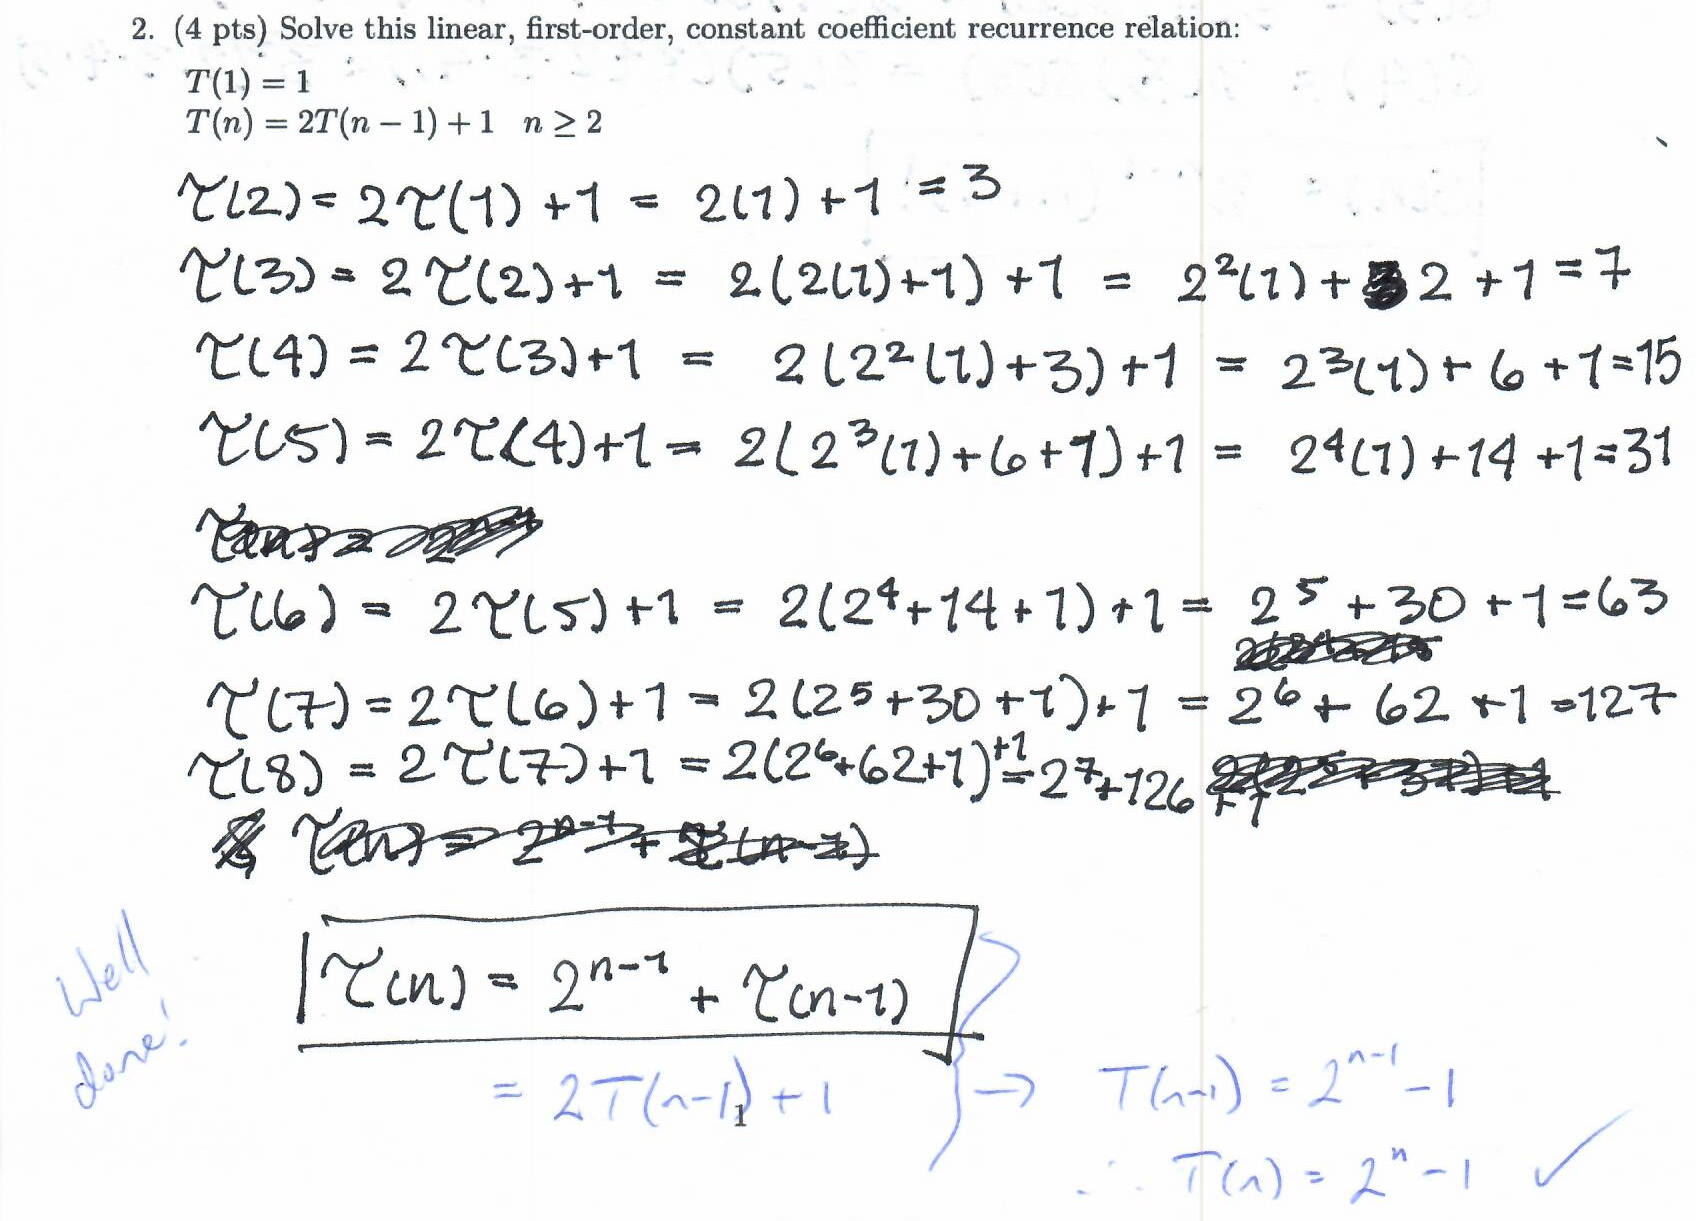 2. (4 pts) Solve this linear, first-order, constant coefficient recurrence relation:
T(1) = 1
T(n) = 2T(n − 1) + 1 n ≥ 2
T(2) = 2T(1) + 1 = 2(1) + 1 = 3
T(3) = 2T(2) + 1 = 2(2(1)+1) + 1 = 2²(1) + 2 + 1 = 7
T(4) = 2T(3)+1 = 2(2²(1)+3)+1 = 2³(1)+6+1=15
T(5) = 2T(4)+1 = 2(2³(1)+6+1)+1 = 2⁴(1)+14+1=31
T(6) = 2T(5)+1 = 2(2⁴+14+1)+1 = 2⁵+30+1=63
T(7) = 2T(6)+1 = 2(2⁵+30+1)+1 = 2⁶+62+1=127
T(8) = 2T(7)+1 = 2(2⁶+62+1)+1 = 2⁷+126+1
T(n) = 2ⁿ⁻¹ + T(n-1)
Well
done!
= 2T(n-1) + 1 → T(n-1) = 2ⁿ⁻¹ - 1
1
∴ T(n) = 2ⁿ - 1 ✓